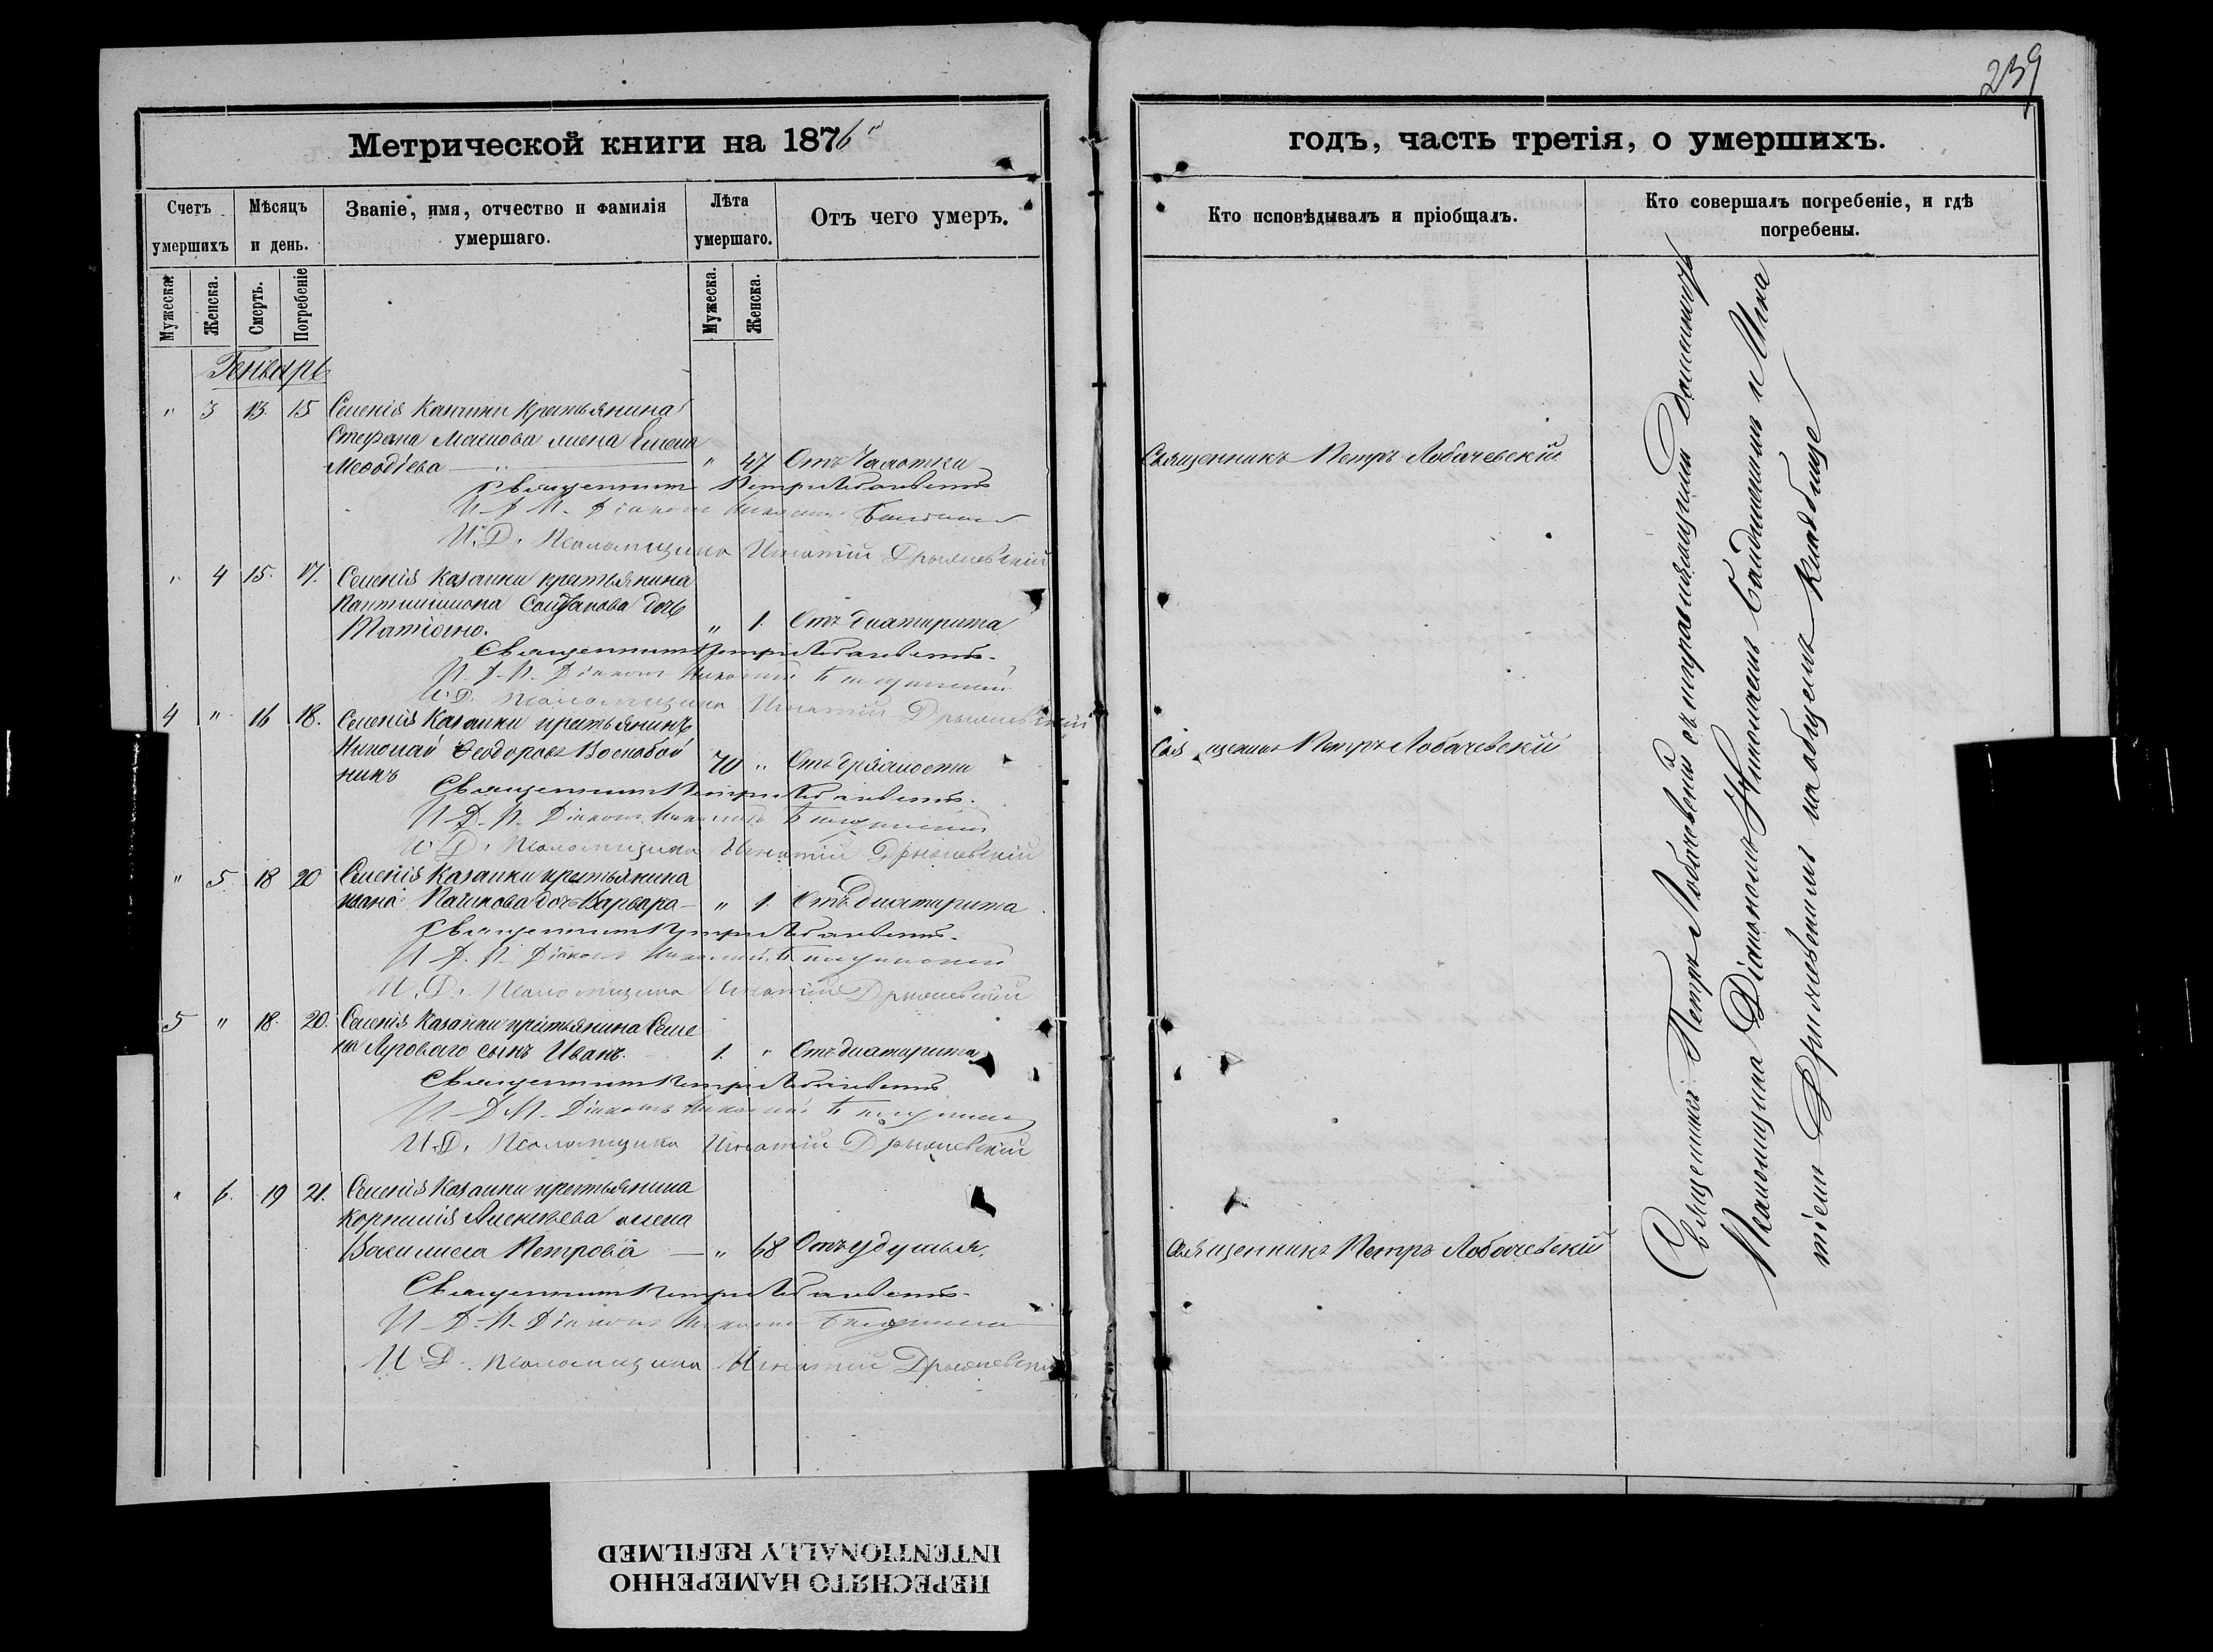 239
Метрической книги на 1876 годъ, часть третія, о умершихъ.
Счетъ умершихъ
Мѣсяцъ и день.
Званіе, имя, отчество и фамилія умершаго.
Лѣта умершаго.
Отъ чего умеръ.
Кто исповѣдывалъ и пріобщалъ.
Кто совершалъ погребеніе, и гдѣ погребены.
Мужеска.
Женска.
Смерть.
Погребеніе
Мужеска.
Женска.
Генварь
" 3 13 15 Селенія Казанки крестьянина
Стефана жена
Меѳодіева " 47 Отъ Чахотки Священникъ Петръ Лобачевскій
Священникъ Петръ Лобачевскій
И. Д. П. Діаконъ Николай
И. Д. Псаломщика Игнатій
" 4 15. 17. Селенія Казанки крестьянина
дочь
" 1. Отъ дифтерита
Священникъ Петръ Лобачевскій.
И. Д. П. Діаконъ Николай
И. Д. Псаломщика Игнатій
4 " 16 18. Селенія Казанки крестьянинъ
Николай Ѳеодоровъ Воскобой
никъ 70 " Отъ дряхлости Священникъ Петръ Лобачевскій
Священникъ Петръ Лобачевскій.
И. Д. П. Діаконъ Николай
И. Д. Псаломщика Игнатій
" 5 18 20 Селенія Казанки крестьянина
Ивана дочь Варвара " 1. Отъ дифтерита
Священникъ Петръ Лобачевскій.
И. Д. П. Діаконъ Николай
И. Д. Псаломщика Игнатій
5 " 18. 20. Селенія Казанки крестьянина Семе
на Луговаго сынъ Иванъ. 1. " Отъ дифтерита
Священникъ Петръ Лобачевскій
И. Д. П. Діаконъ Николай
И. Д. Псаломщика Игнатій
" 6. 19 21. Селенія Казанки крестьянина
Корнилія Алексѣева жена
Василиса Петрова " 68 Отъ удушья. Священникъ Петръ Лобачевскій
Священникъ Петръ Лобачевскій.
И. Д. П. Діаконъ Николай
И. Д. Псаломщика Игнатій
Священникъ Петръ Лобачевскій съ исправляющими должность
Псаломщика Діакономъ Николаемъ и Игна
тіемъ на общемъ кладбище
ПЕРЕСНЯТО НАМЕРЕННО
INTENTIONALLY REFILMED